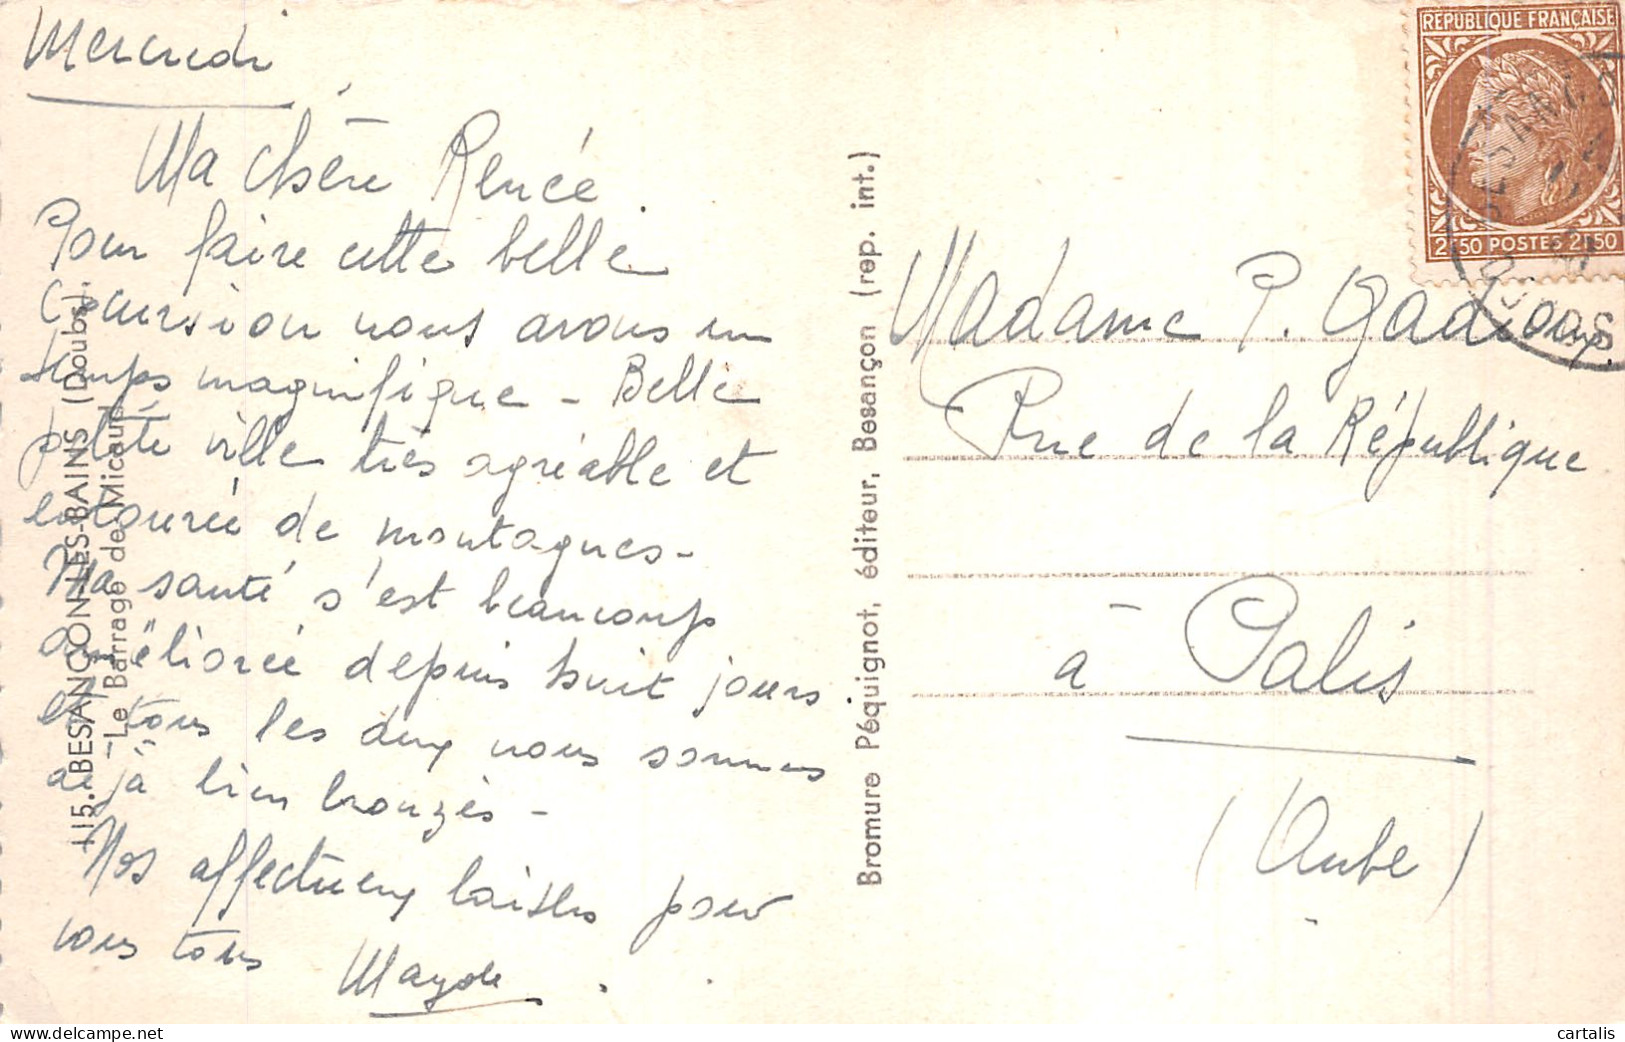 Mercredi
Ma chère Renée.
Pour faire cette belle
excursion nous avons un
temps magnifique - Belle
petite ville très agréable et
entourée de montagnes -
Ma santé s'est beaucoup
améliorée depuis huit jours
et tous les deux nous sommes
déjà bien bronzés -
Nos affectueux baisers pour
vous tous
115. BESANÇON-LES-BAINS (Doubs).
Le Barrage de Micaud
Bromure Péquignot, éditeur, Besançon (rep. int.)
RÉPUBLIQUE FRANÇAISE
2F50 POSTES 2F50
BESANÇON
DOUBS
Madame P.
Rue de la République
à Palis
(Aube)
cartalis